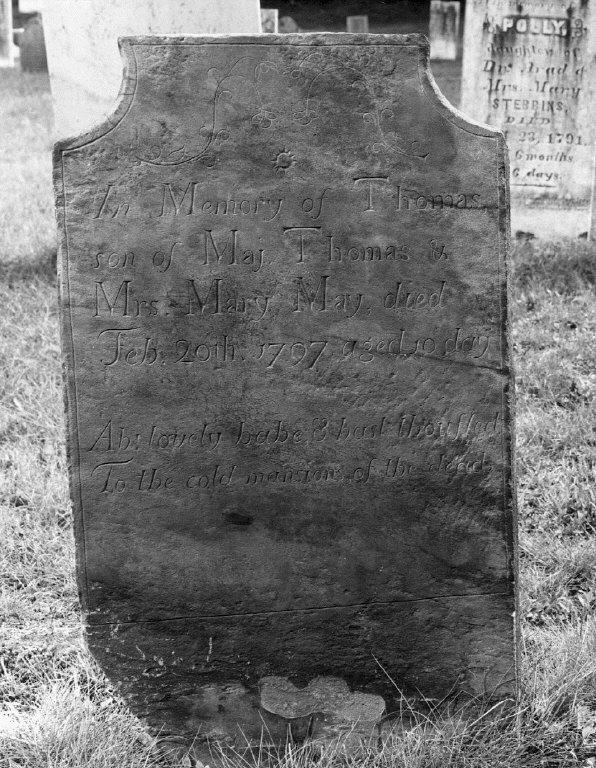 In Memory of Thomas
son of Maj. Thomas &
Mrs. Mary May, died
Feb. 20th. 1797 aged 10 day
Ah! lovely babe & hast thou fled
To the cold mansions of the dead
POLLY,
daughter of
Dn. Arad &
Mrs. Mary
STEBBINS,
DIED
23, 1791.
6 months
6 days.